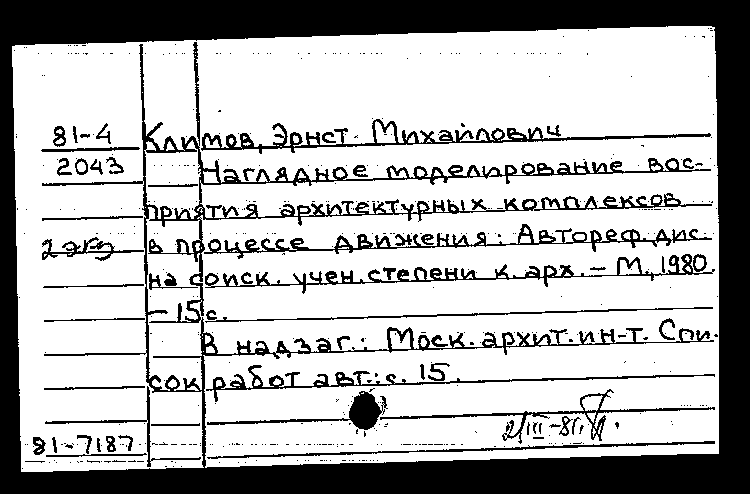 81-4 Климов, Эрнст Михайлович
2043 Наглядное моделирование вос-
приятия архитектурных комплексов
2 экз в процессе движения: Автореф. дис.
на соиск. учен. степени к. арх. – М., 1980.
– 15 с.
В надзаг.: Моск. архит. ин-т. Спи-
сок работ авт.: с. 15.
2/III-81.
81-7187